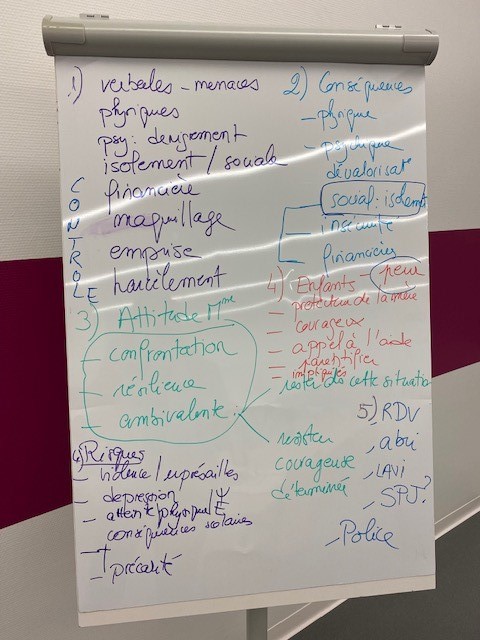 1) verbales - menaces
physiques
psy : denigrement
isolement / sociale
financière
maquillage
emprise
harcèlement
CONTROLE
2) Conséquences
- physique
- psychique
dévalorisat°
social : isolemt
- insécurité
- financières
3) Attitude Mme
- confrontation
- résilience
- ambivalente :
rester ds cette situation
résister
courageuse
déterminée
4) Enfants - peur
- protecteur de la mère
- courageux
- appel à l'aide
- parentifier
- impliqués
5) RDV
- abri
- LAVI
- SPJ?
- Police
6) Risques
- violence / représailles
- dépression Ψ
- atteinte physique /
- conséquences scolaires
- †
- précarité